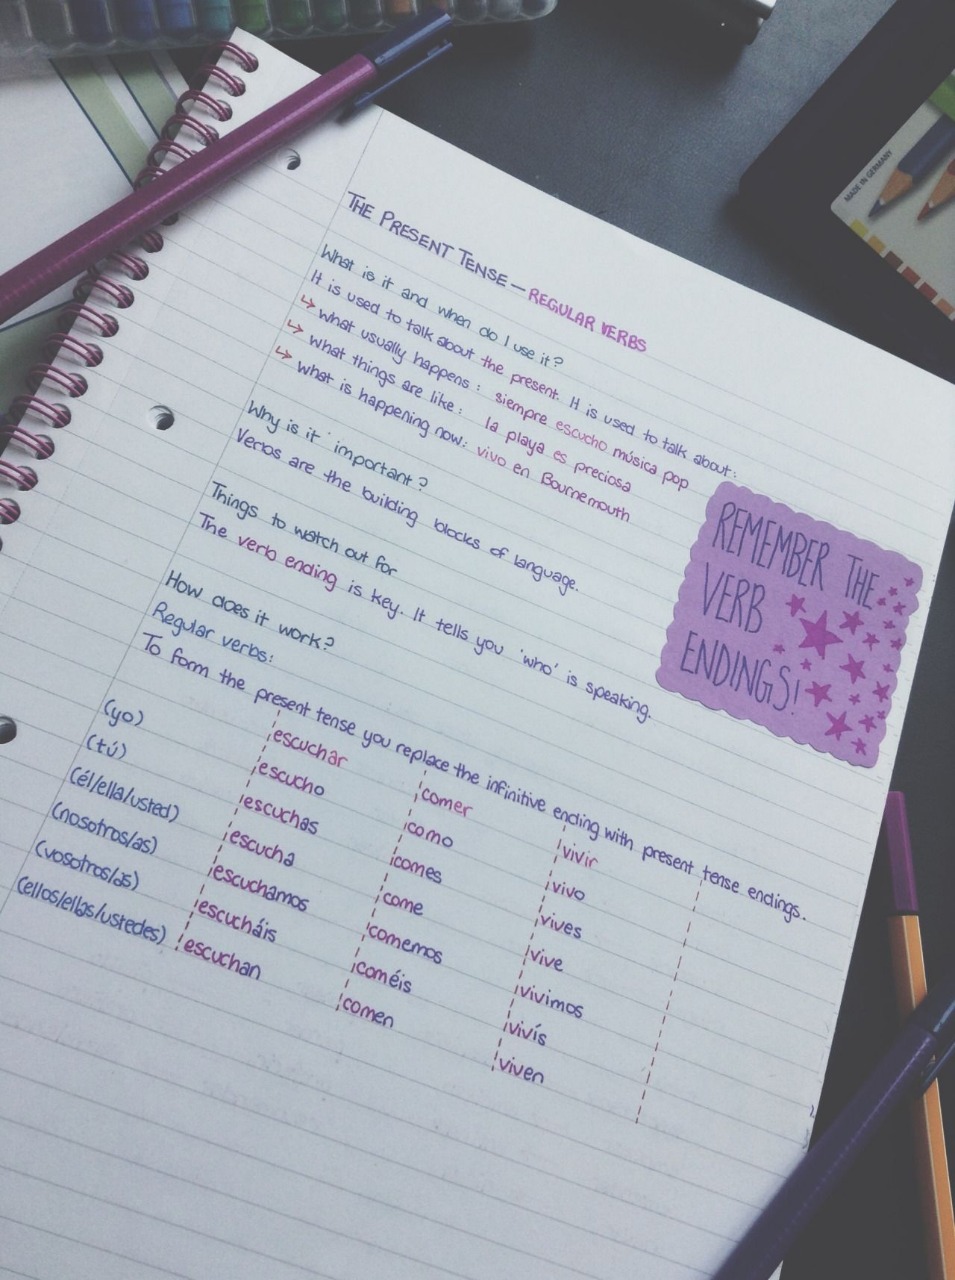 MADE IN GERMANY
THE PRESENT TENSE – REGULAR VERBS
What is it and when do I use it?
It is used to talk about the present. It is used to talk about:
↳ what usually happens: siempre escucho música pop
↳ what things are like: la playa es preciosa
↳ what is happening now: vivo en Bournemouth
Why is it important?
Verbs are the building blocks of language.
REMEMBER THE
VERB
ENDINGS!
Things to watch out for
The verb ending is key. It tells you 'who' is speaking.
How does it work?
Regular verbs:
To form the present tense you replace the infinitive ending with present tense endings.
escuchar comer vivir
(yo) escucho como vivo
(tú) escuchas comes vives
(él/ella/usted) escucha come vive
(nosotros/as) escuchamos comemos vivimos
(vosotros/as) escucháis coméis vivís
(ellos/ellas/ustedes) escuchan comen viven